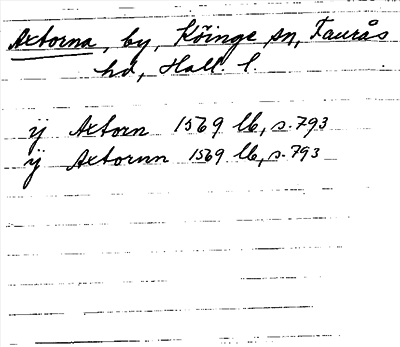 Axtorna, by, Köinge sn, Faurås
hd, Hall. l.
ij Axtorn 1569 lb, s. 793
ij Axtornn 1569 lb, s. 793